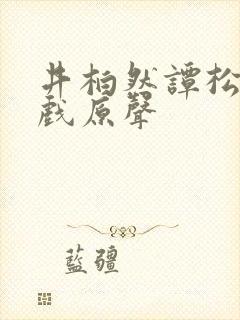 井柏然譚松
戲原聲
藍疆